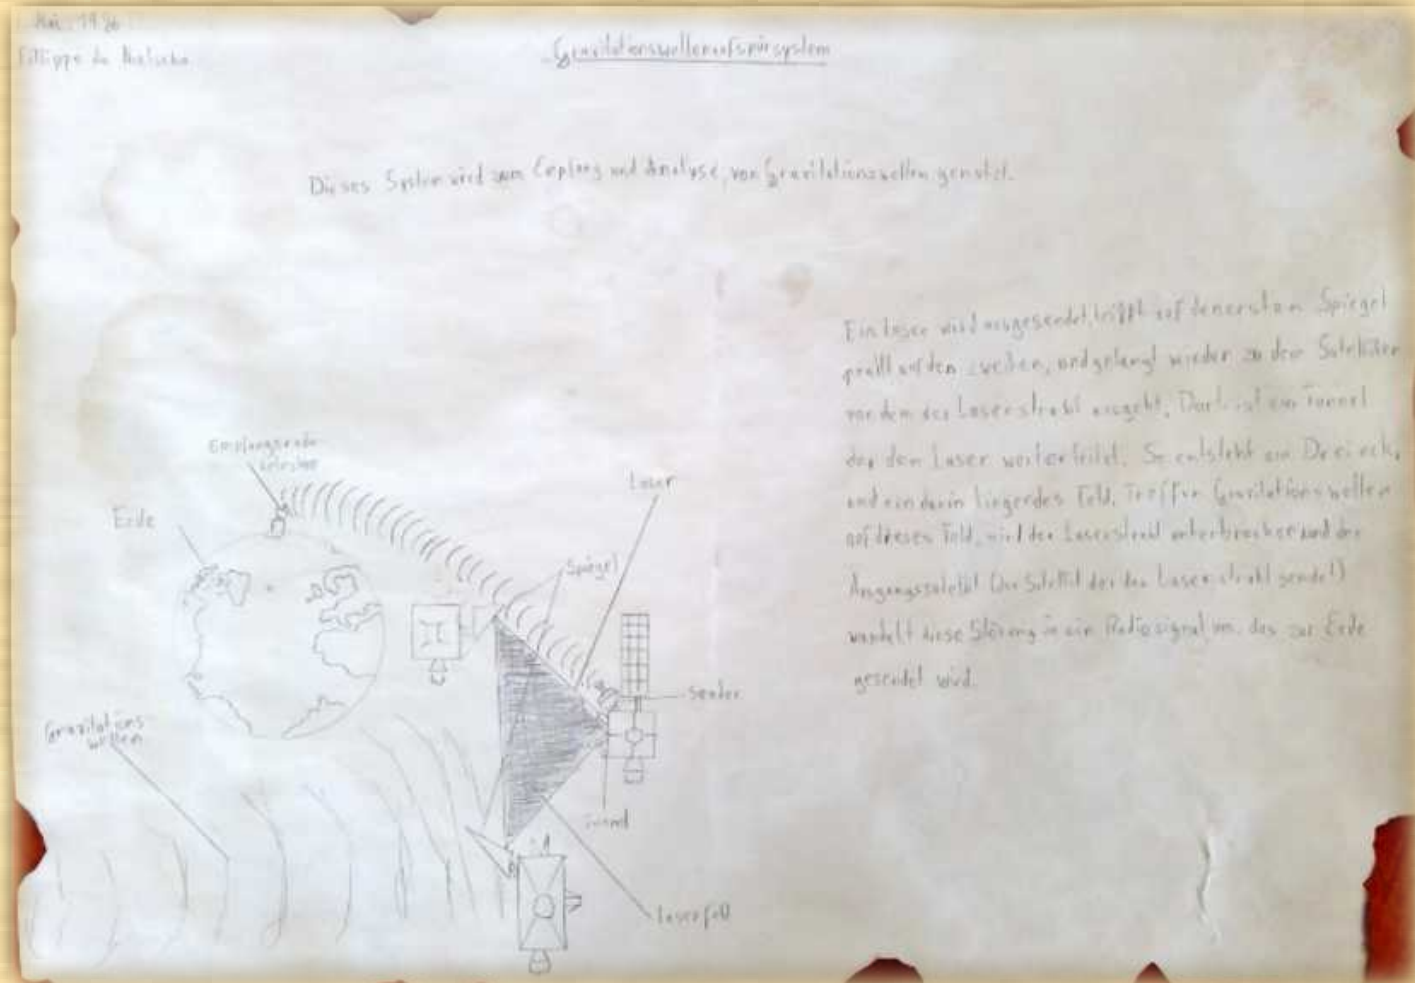 Mai. 1936
Fillippo da
Gravitationswellenaufspürsystem
Dieses System wird zum Empfang und Analyse, von Gravitationswellen genutzt.
Ein Laser wird ausgesendet, trifft auf den ersten Spiegel
prallt auf den zweiten, und gelangt wieder zu dem Satelliten
von dem der Laserstrahl ausgeht. Dort ist ein Tunnel
der den Laser weiterleitet. So entsteht ein Dreieck,
und ein darin liegendes Feld. Treffen Gravitationswellen
auf dieses Feld, wird der Laserstrahl unterbrochen und der
Ausgangssatelit (Der Satellit der den Laserstrahl sendet)
wandelt diese Störung in ein Radiosignal um, das zur Erde
gesendet wird.
Empfangsradio
teleskop
Laser
Erde
Spiegel
Sender
Gravitations
wellen
Tunnel
Laserfeld